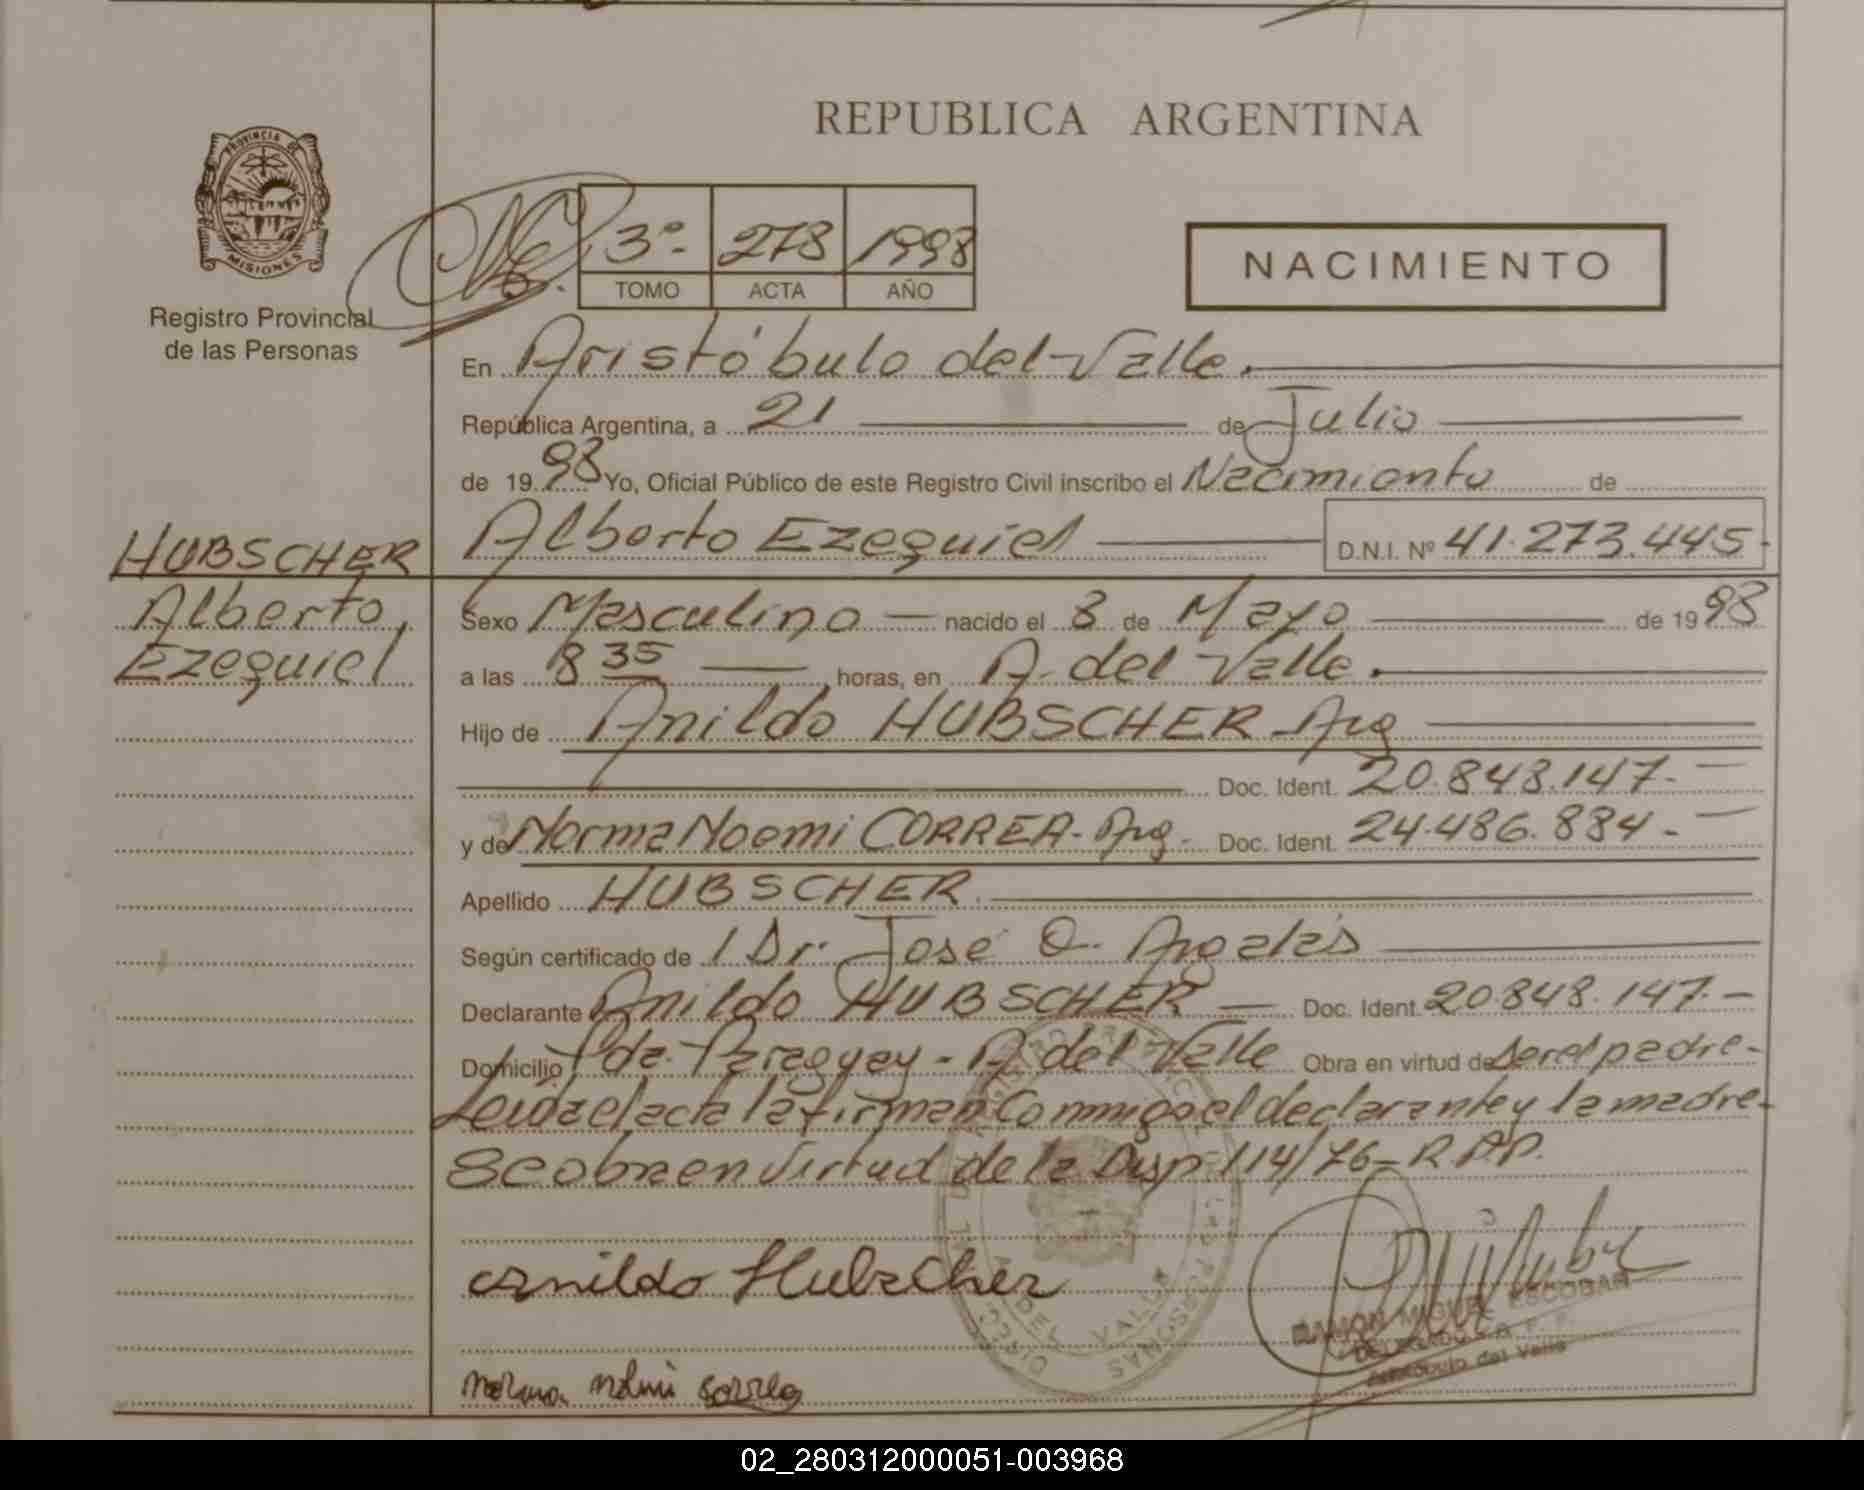 REPUBLICA ARGENTINA
PROVINCIA DE
MISIONES
Registro Provincial
de las Personas
3º- 278 1998
TOMO ACTA AÑO
NACIMIENTO
En Aristóbulo del Valle.
República Argentina, a 21 de Julio
de 19 98 Yo, Oficial Público de este Registro Civil inscribo el Nacimiento de
HUBSCHER
Alberto Ezequiel D.N.I. Nº 41.273.445-
Alberto,
Ezequiel
Sexo Masculino — nacido el 8 de Mayo de 19 98
a las 8 35 horas, en A. del Valle.
Hijo de Anildo HUBSCHER Arg
Doc. Ident. 20.848.147.-
y de Norma Noemi CORREA- Arg- Doc. Ident. 24.486.884-
Apellido HUBSCHER.
Según certificado de l Dr. José O. 
Declarante Anildo HUBSCHER — Doc. Ident. 20.848.147.-
Domicilio Pda. Paraguay - A. del Valle Obra en virtud de ser el padre-
Leída el acta la firman Conmigo el declarante y la madre-
Se obra en Virtud de la Disp 114/76- R.P.P.
Anildo Hubscher
RAMON MIGUEL ESCOBAR
DELEGADO
Aristóbulo del Valle
Norma Noemi Correa
DEL VALLE
02_280312000051-003968